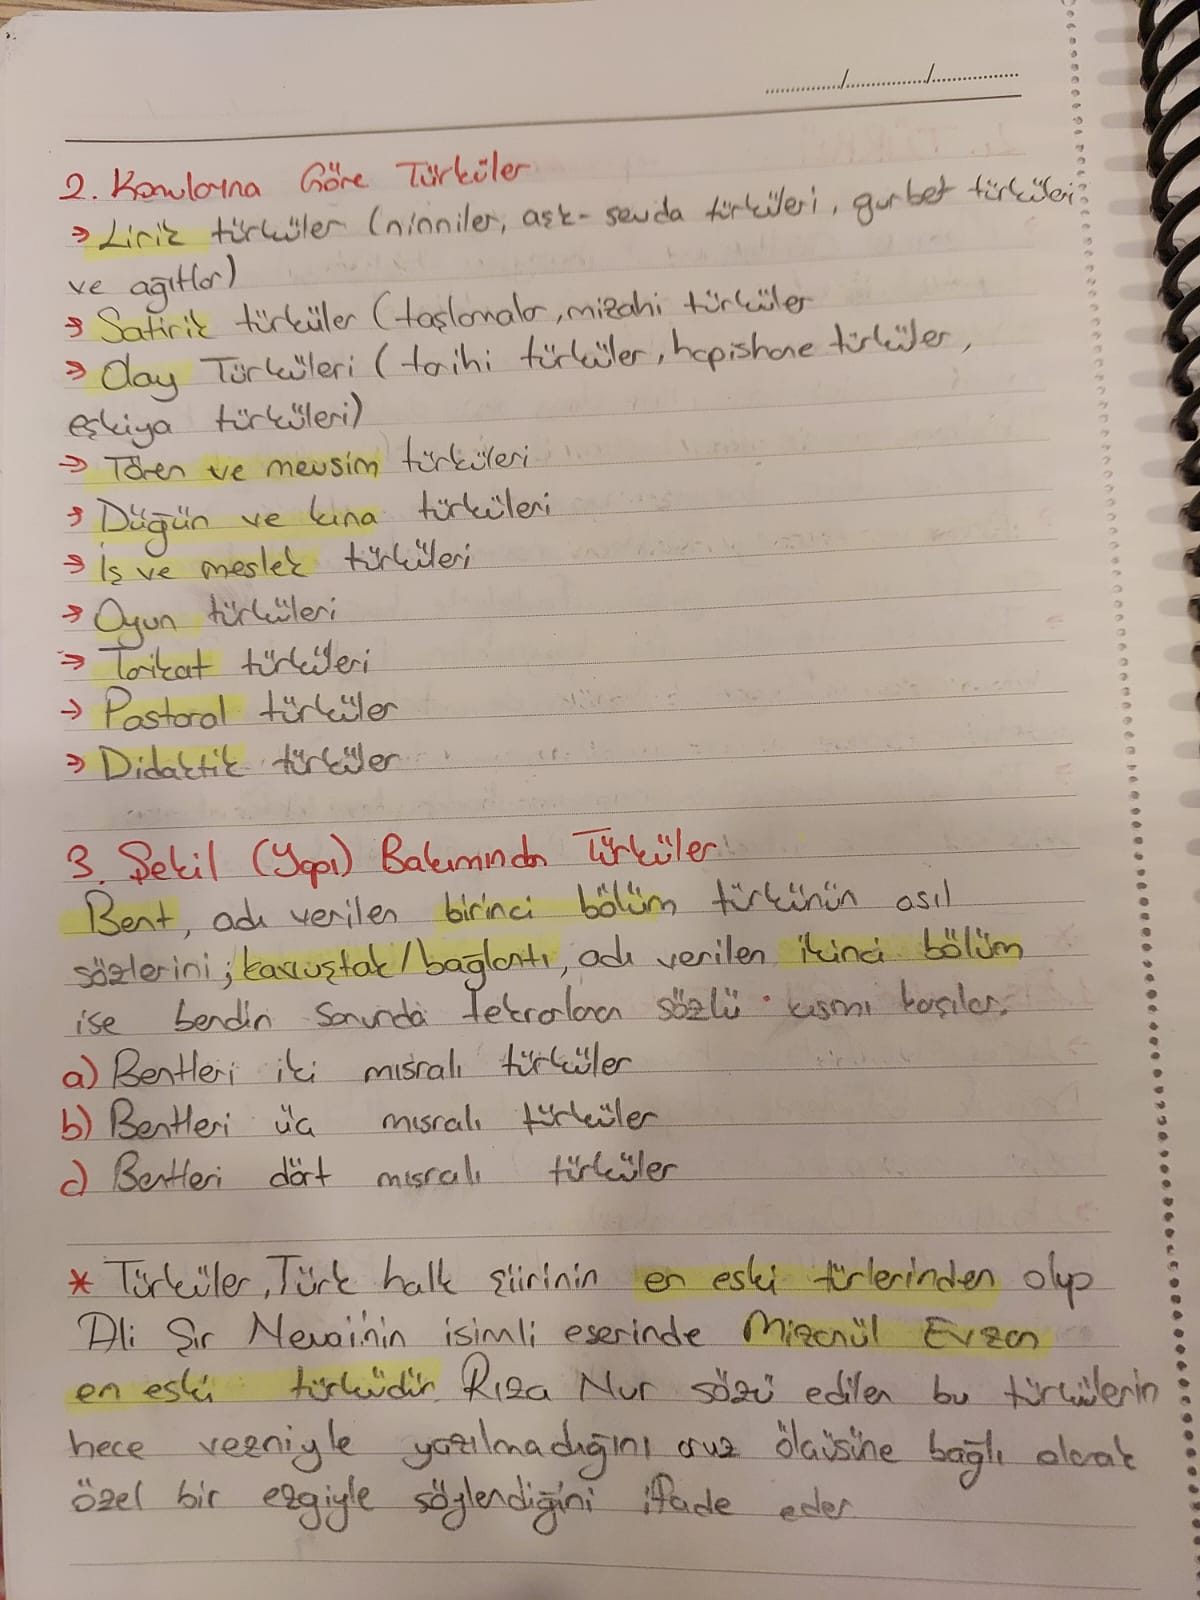 2. Konularına Göre Türküler
→ Lirik türküler (ninniler, aşk-sevda türküleri, gurbet türküleri
ve ağıtlar)
→ Satirik türküler (taşlamalar, mizahi türküler
→ Olay Türküleri (tarihi türküler, hapishane türküler,
eşkiya türküleri)
→ Tören ve mevsim türküleri
→ Düğün ve kına türküleri
→ İş ve meslek türküleri
→ Oyun türküleri
→ Tarikat türküleri
→ Pastoral türküler
→ Didaktik türküler
3. Şekil (Yapı) Bakımından Türküler
Bent, adı verilen birinci bölüm türkünün asıl
sözlerini; kavuştak/bağlantı, adı verilen ikinci bölüm
ise bendin sonunda tekrarlanan sözlü kısmı karşılar.
a) Bentleri iki mısralı türküler
b) Bentleri üç mısralı türküler
c) Bentleri dört mısralı türküler
* Türküler, Türk halk şiirinin en eski türlerinden olup
Ali Şir Nevainin isimli eserinde Mizanül Evzan
en eski türküdür. Rıza Nur sözü edilen bu türkülerin
hece vezniyle yazılmadığını aruz ölçüsüne bağlı olarak
özel bir ezgiyle söylendiğini ifade eder